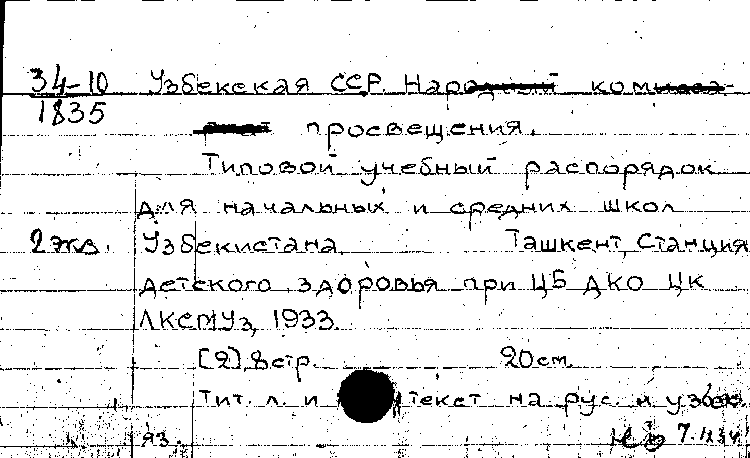 34-10 Узбекская ССР. Народный комисса-
1835 риат просвещения.
Типовой учебный распорядок
для начальных и средних школ
2 экз. Узбекистана. Ташкент, Станция
детского здоровья при ЦБ ДКО ЦК
ЛКСМУз, 1933.
[2], 8 стр. 20 см.
Тит. л. и текст на рус. и узбек.
яз.